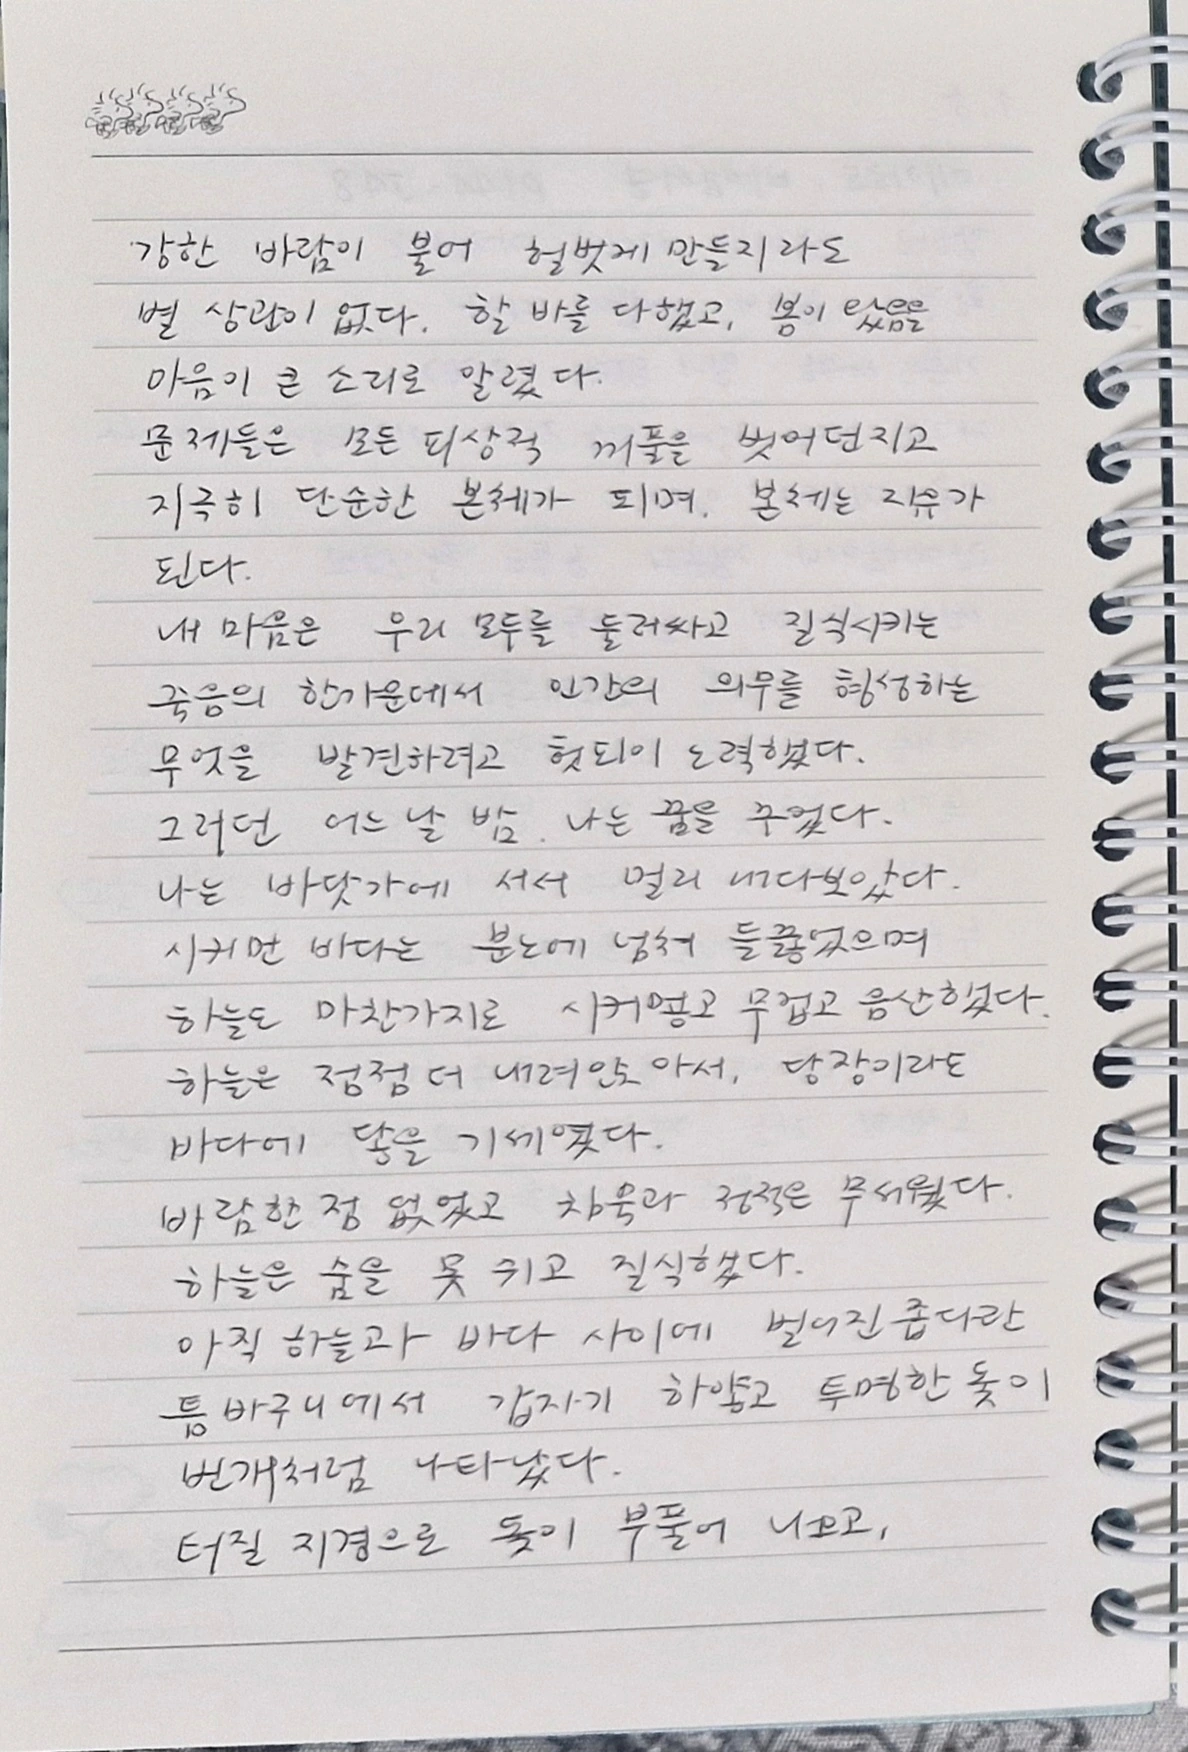 강한 바람이 불어 헐벗게 만들지라도
별 상관이 없다. 할 바를 다했고, 봄이 왔음을
마음이 큰 소리로 알렸다.
문제들은 모든 피상적 꺼풀을 벗어던지고
지극히 단순한 본체가 되며. 본체는 자유가
된다.
내 마음은 우리 모두를 둘러싸고 질식시키는
죽음의 한가운데서 인간의 의무를 형성하는
무엇을 발견하려고 헛되이 노력했다.
그러던 어느 날 밤. 나는 꿈을 꾸었다.
나는 바닷가에 서서 멀리 내다보았다.
시커먼 바다는 분노에 넘쳐 들끓었으며
하늘도 마찬가지로 시커멓고 무겁고 음산했다.
하늘은 점점 더 내려앉아서, 당장이라도
바다에 닿을 기세였다.
바람한 점 없었고 침묵과 정적은 무서웠다.
하늘은 숨을 못 쉬고 질식했다.
아직 하늘과 바다 사이에 벌어진 좁다란
틈바구니에서 갑자기 하얗고 투명한 돛이
번개처럼 나타났다.
터질 지경으로 돛이 부풀어